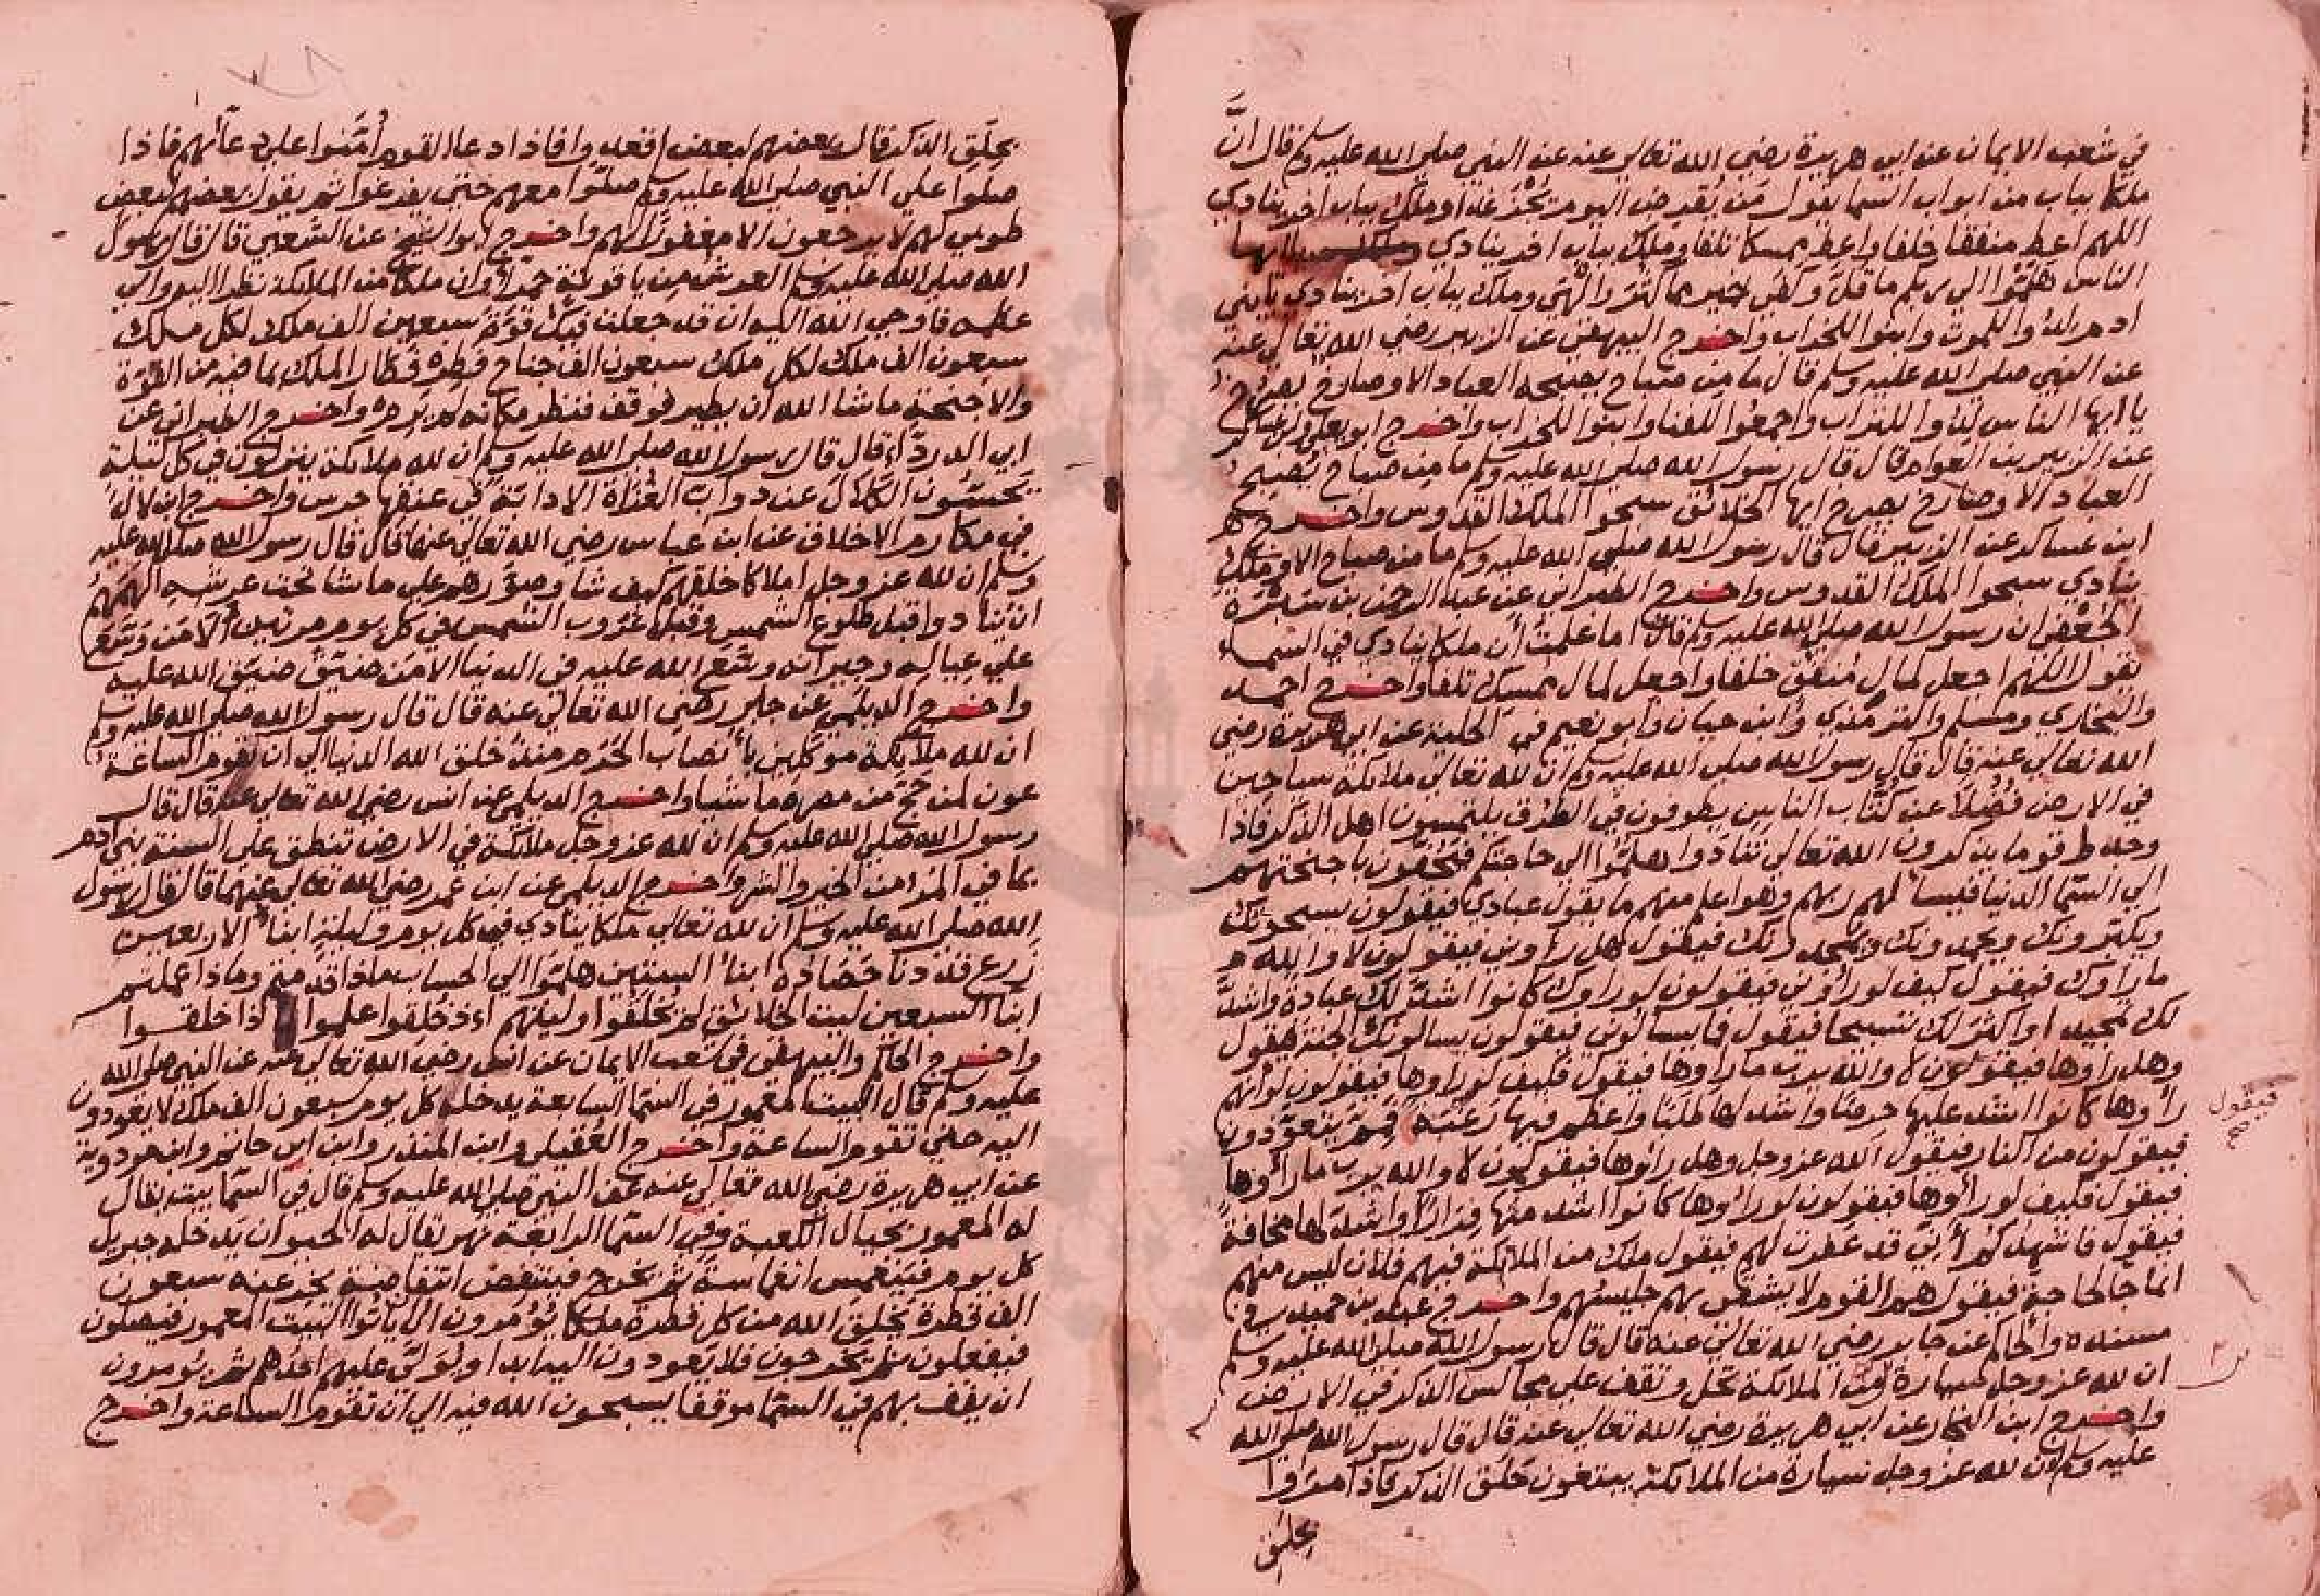 في شعب الايمان عن ابي هريرة رضي الله تعالي عنه عن النبي صلي الله عليه وسلم قال انَّ
ملكا بباب من ابواب السما يقول من يُقرض اليوم يُجْزَ غدا وملك بباب اخر ينادي
اللهم اعط منفقا خلفا واعط ممسكا تلفا وملك بباب اخر ينادي يا ايها
الناس هلمّوا الي ربكم ما قلّ وكفي خير مما كثر والهي وملك بباب اخر ينادي يا بني
ادم لدوا للموت وابنوا للخراب واخرج البيهقي عن الزبير رضي الله تعالي عنه
عن النبي صلي الله عليه وسلم قال ما من صباح يصبحه العباد الا وصارخ يصرخ
يا ايها الناس لدوا للتراب واجمعوا للفنا وابنوا للخراب واخرج ابو يعلي وابن عساكر
عن الزبير بن العوام قال قال رسول الله صلي الله عليه وسلم ما من صباح يُصبح
العباد الا وصارخ يصرخ ايها الخلائق سبحوا الملك القدوس واخرج
ابن عساكر عن الزبير قال قال رسول الله صلي الله عليه وسلم ما من صباح الا وملك
ينادي سبحوا الملك القدوس واخرج الطبراني عن عبد الرحمن بن سَبْرَة
الجُعْفي ان رسول الله صلي الله عليه وسلم قال اما علمتَ أن ملكا ينادي في السماء
يقول اللهم اجعل لمال منفق خلفا واجعل لمال ممسك تلفا واخرج احمد
والبخاري ومسلم والترمذي وابن حبان وابو نعيم في الحلية عن ابي هريرة رضي
الله تعالي عنه قال قال رسول الله صلي الله عليه وسلم ان لله تعالي ملائكة سياحين
في الارض فُضُلاً عن كُتّاب الناس يطوفون في الطرق يلتمسون اهل الذكر فاذا
وجدوا قوما يذكرون الله تعالي تنادوا هلمّوا الي حاجتكم فيحفّون باجنحتهم
الي السما الدنيا فيسألهم ربهم وهو اعلم منهم ما يقول عبادي فيقولون يسبحونك
ويكبرونك ويحمدونك ويمجدونك فيقول هل راوني فيقولون لا والله
ما راوك فيقول كيف لو رأوني فيقولون لو راوك كانوا اشدّ لك عبادة واشدّ
لك تمجيدا واكثر لك تسبيحا فيقول فما يسألوني فيقولون يسالونك الجنة فيقول
وهل راوها فيقولون لا والله يرب ما راوها فيقول فكيف لو راوها فيقولون لو انهم
رأوها كانوا اشد عليها حرصا واشد لها طلبا واعظم فيها رغبة قال فمم يتعوّذون
فيقولون من النار فيقول الله عز وجل وهل رأوها فيقولون لا والله يرب ما رأوها
فيقول فكيف لو رأوها فيقولون لو رأوها كانوا اشد منها فِرارًا واشد لها مخافةً
فيقول فاشهدكم أني قد غفرت لهم فيقول ملك من الملائكة فيهم فلان ليس منهم
انما جا لحاجة فيقول هم القوم لا يشقي بهم جليسهم واخرج عبد بن حميد في
مسنده والحاكم عن جابر رضي الله تعالي عنه قال قال رسول الله صلي الله عليه وسلم
ان لله عز وجل سيارة من الملائكة تحل وتقف علي مجالس الذكر في الارض
واخرج ابن النجار عن ابي هريرة رضي الله تعالي عنه قال قال رسول الله صلي الله
عليه وسلم ان لله عز وجل سيارة من الملائكة يبتغون حلق الذكر فاذا مرّوا
بحلق
فيقول
بحلَق الذكر قال بعضهم لبعض اقعدوا فاذا دعا القوم أمّنوا علي دعائهم فاذا
صلوا علي النبي صلي الله عليه وسلم صلّوا معهم حتي يفرغوا ثم يقول بعضهم لبعض
طوبي لهم لا يرجعون الا مغفورًا لهم واخرج ابو الشيخ عن الشعبي قال قال رسول
الله صلي الله عليه وسلم العرش من ياقوتة حمرا وان ملكا من الملائكة نظر اليه والي
عظمه فاوحي الله اليه ان قد جعلت فيك قوّة سبعين الف ملك لكل ملك
سبعون الف ملك لكل ملك سبعون الف جناح فطِر فطار الملك بما فيه من القوّة
والاجنحة ما شا الله ان يطير فوقف فنظر فكانه لم يَرِم واخرج الطبراني عن
ابي الدرداء قال قال رسول الله صلي الله عليه وسلم ان لله ملائكة ينزلون في كل ليلة
يَحسّون الكلال عن دوابّ الغُزاة الا دابّة في عنقها جرس واخرج ابن لال
في مكارم الاخلاق عن ابن عباس رضي الله تعالي عنهما قال قال رسول الله صلي الله عليه
وسلم ان لله عز وجل املاكا خلقهم كيف شا وصوّرهم علي ما شا تحت عرشه الهمهم
ان ينادوا قبل طلوع الشمس وقبل غروب الشمس في كل يوم مرتين ألا من وسّع
علي عياله وجيرانه وسّع الله عليه في الدنيا الا من ضيّق ضيّق الله عليه
واخرج الديلمي عن جابر رضي الله تعالي عنه قال قال رسول الله صلي الله عليه وسلم
ان لله ملائكة موكلين بأنصاب الحَرَم منذ خلق الله الدنيا الي ان تقوم الساعة
عون لمن حجّ من مصره ماشيا واخرج الديلمي عن انس رضي الله تعالي عنه قال قال
رسول الله صلي الله عليه وسلم ان لله عز وجل ملائكة في الارض تنطق علي السنة بني ادم
بما في المرء من الخير والشر واخرج الديلمي عن ابن عمر رضي الله تعالي عنهما قال قال رسول
الله صلي الله عليه وسلم ان لله تعالي ملكا ينادي في كل يوم وليلة ابناء الاربعين
زرع قد دنا حَصَاده ابناء الستين هلمّوا الي الحساب ماذا قدمتم وماذا عملتم
ابنا السبعين ليت الخلائق لم يُخلقوا وليتهم اذ خُلقوا علموا لماذا خلقوا
واخرج الحاكم والبيهقي في شعب الايمان عن انس رضي الله تعالي عنه عن النبي صلي الله
عليه وسلم قال البيت المعمور في السّما السابعة يدخله كل يوم سبعون الف ملك لا يعودون
اليه حتي تقوم الساعة واخرج العُقيلي وابن المنذر وابن ابي حاتم وابن مردوية
عن ابي هريرة رضي الله تعالي عنه عن النبي صلي الله عليه وسلم قال في السّما بيت يقال
له المعمور بحيال الكعبة وفي السّما الرابعة نهر يقال له الحيوان يدخله جبريل
كل يوم فينغمس انغماسة ثم يخرج فينتفض انتفاضة يخر عنه سبعون
الف قطرة يخلق الله من كل قطرة ملكا يُؤمَرون ان يأتوا البيت المعمور فيصلون
فيفعلون ثم يخرجون فلا يعودون اليه ابدا ويُولّي عليهم احدهم ثم يؤمرون
ان يقف بهم في السّما موقفا يسبحون الله فيه الي ان تقوم الساعة واخرج